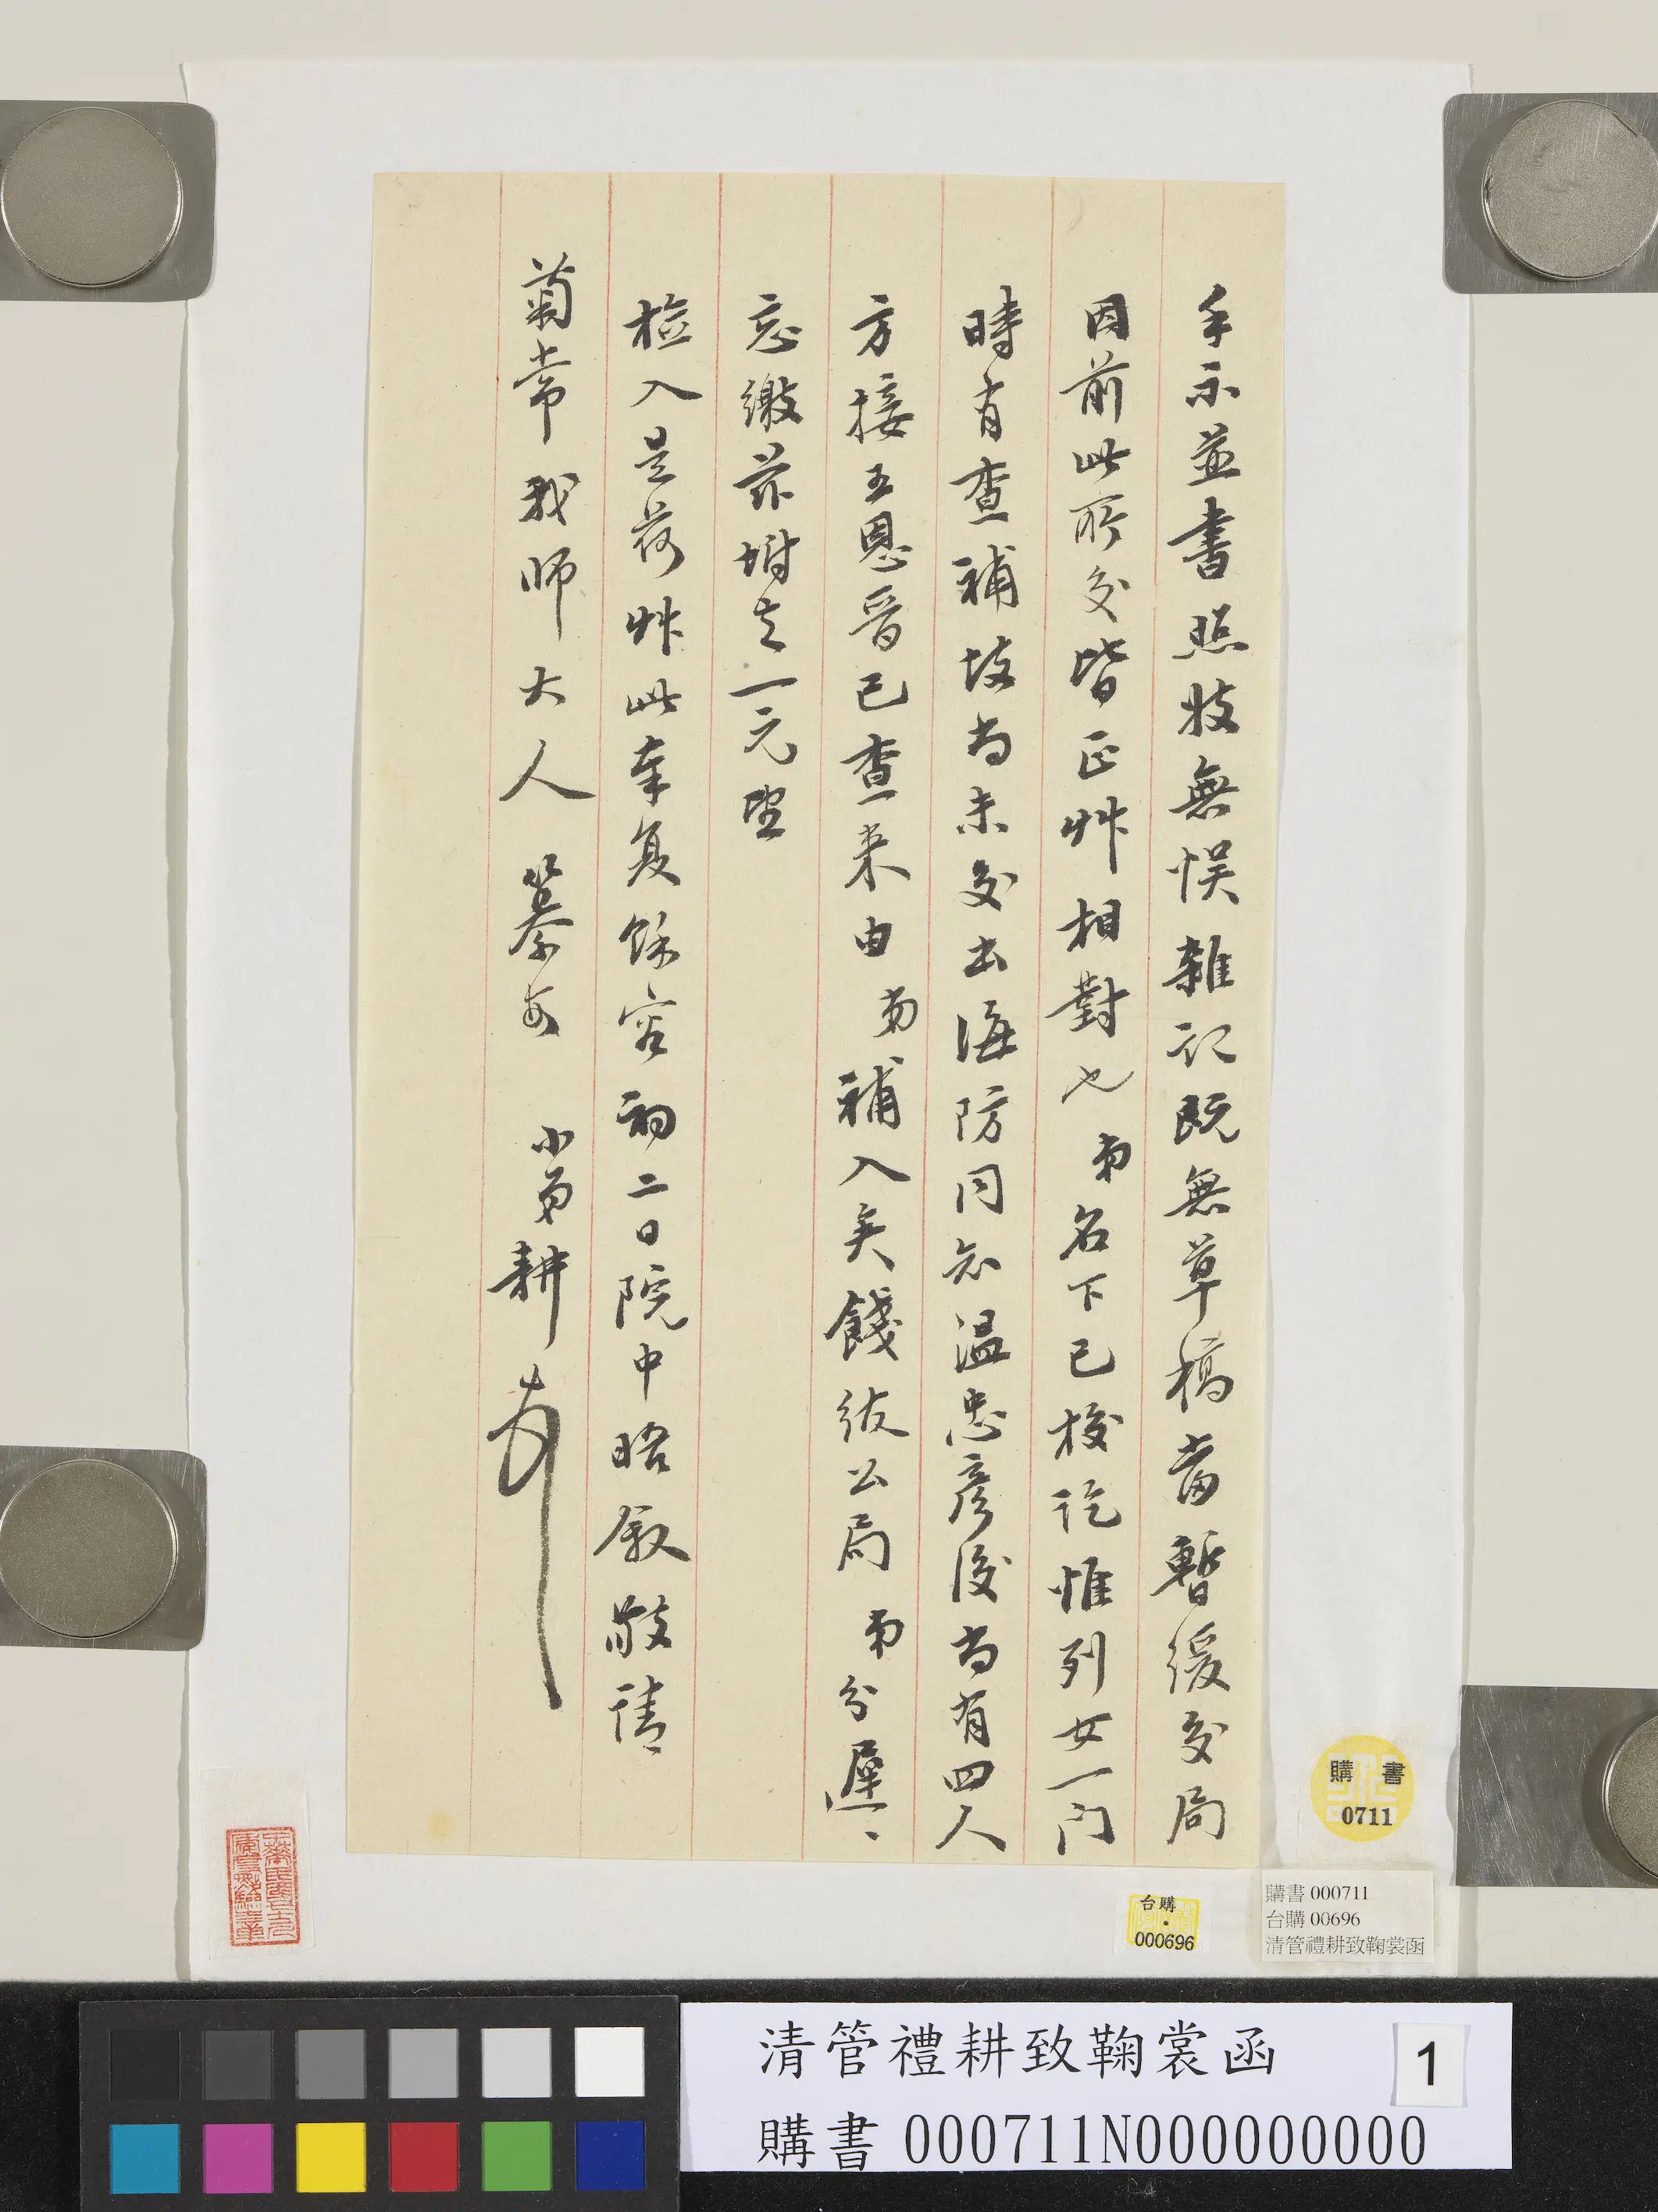 手示並書照收無悞雜記既無草稿當暫緩交局
因前此所交皆正艸相對也弟名下已校訖惟列女一门
時有查補故尚未交出海防同知温忠彦後尚有四人
方接五恩晋已查来由弟補入矣餞紱公局弟分遲〻
忘繳茲坿去一元望
檢入是荷艸此奉复餘容初二日院中晤敘敬請
菊常我師大人 篹安 小弟耕
購書
0711
台購
000696
購書 000711
台購 00696
清管禮耕致鞠裳函
清管禮耕致鞠裳函
1
購書 000711N000000000